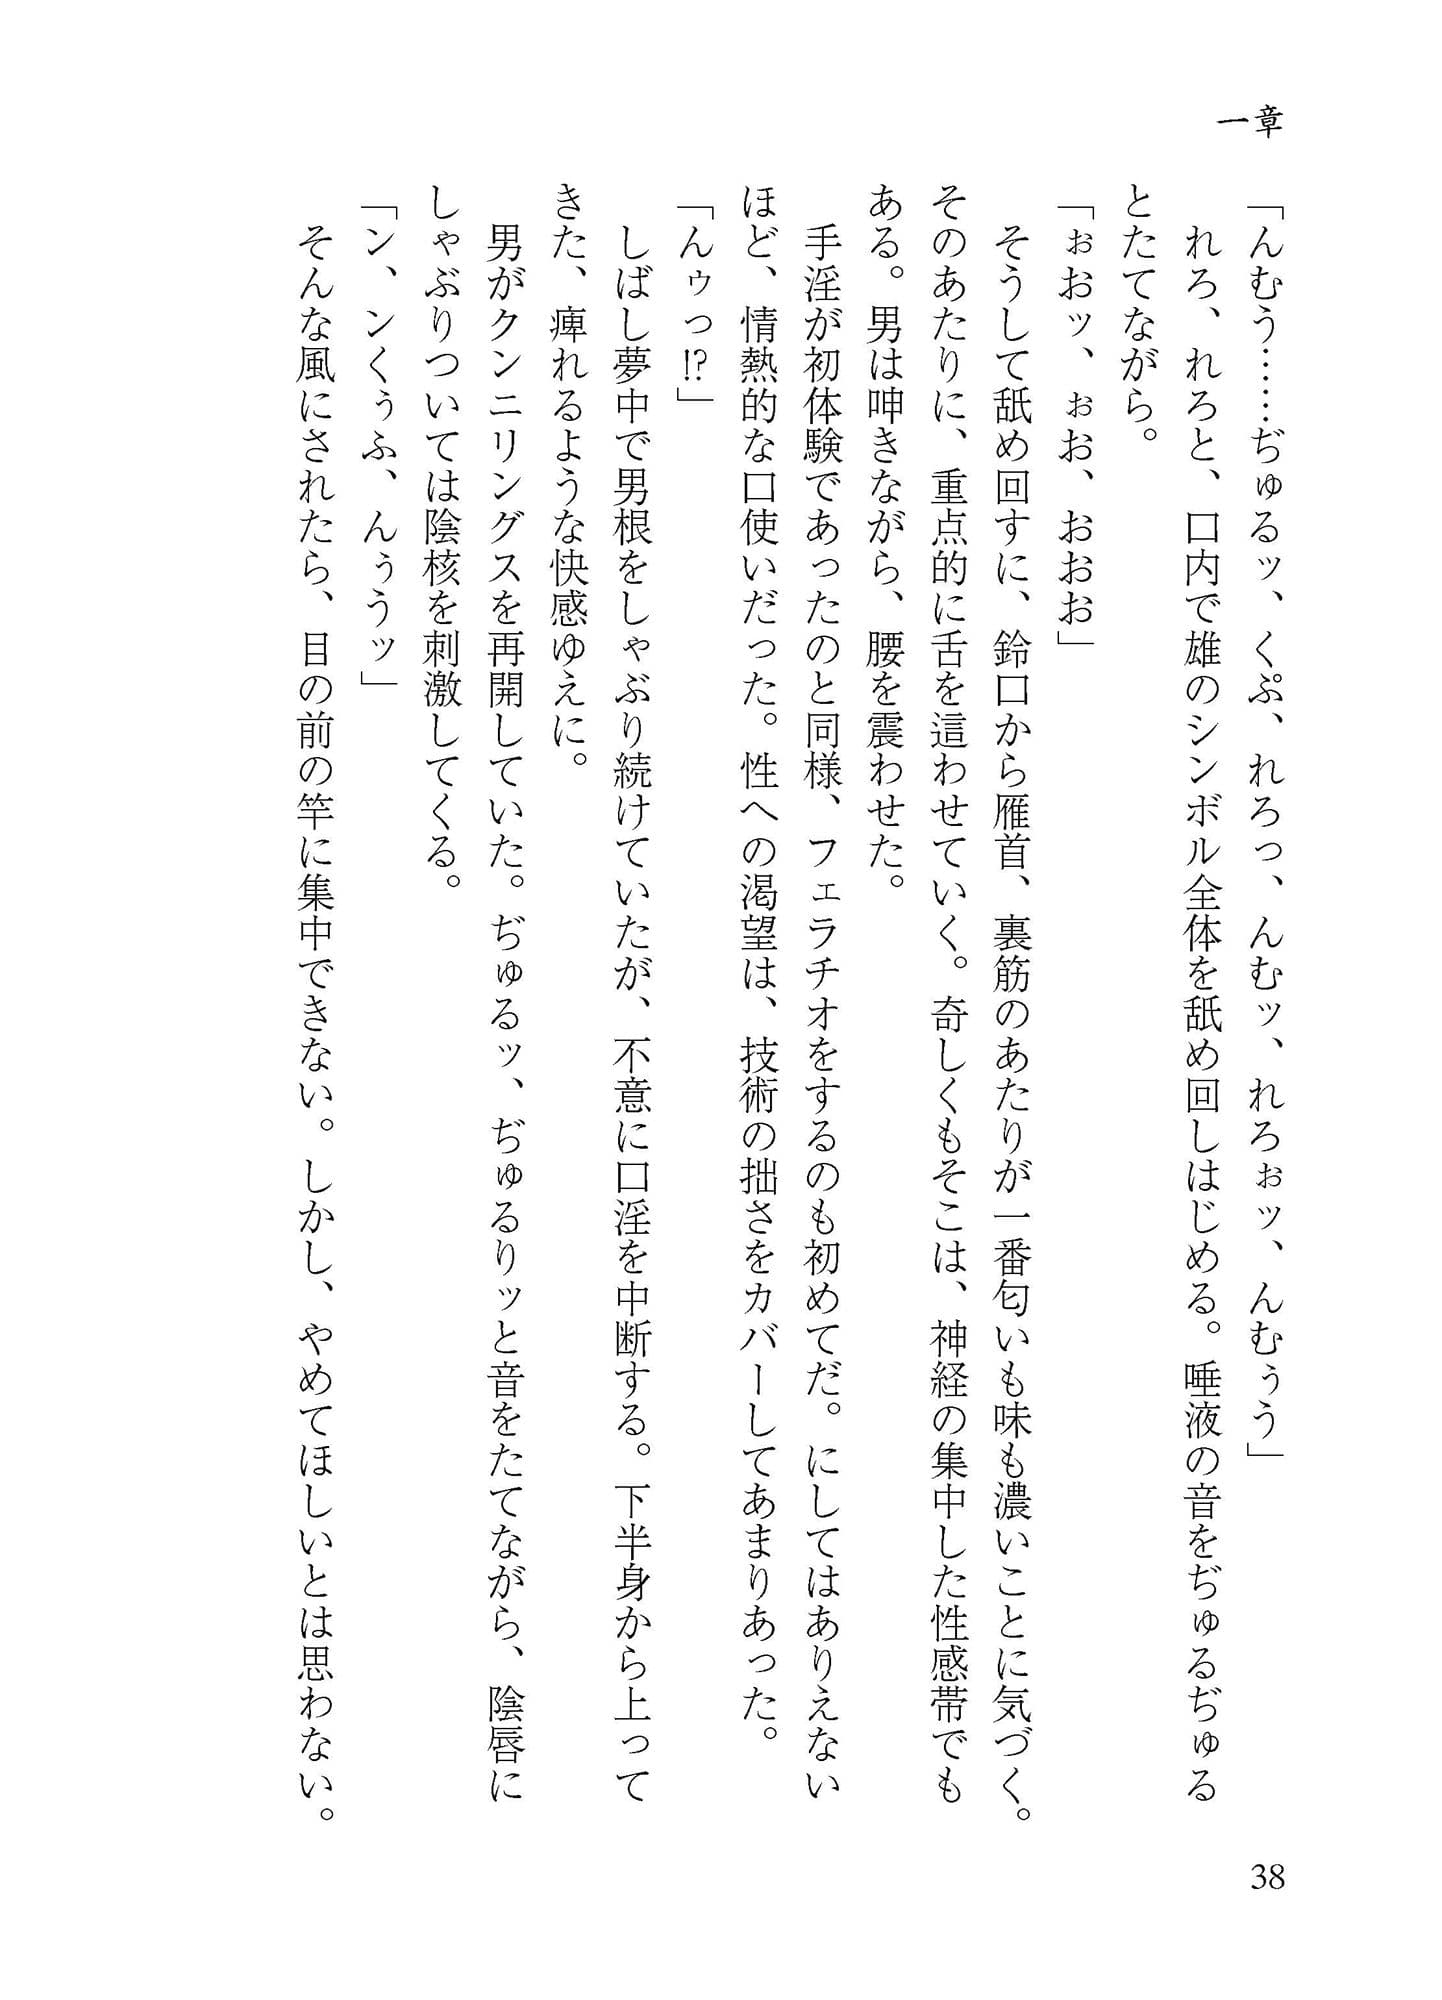 一章
「んむう……ぢゅるッ、くぷ、れろっ、んむッ、れろぉッ、んむぅう」
れろ、れろと、口内で雄のシンボル全体を舐め回しはじめる。唾液の音をぢゅるぢゅる
とたてながら。
「ぉおッ、ぉお、おおお」
そうして舐め回すに、鈴口から雁首、裏筋のあたりが一番匂いも味も濃いことに気づく。
そのあたりに、重点的に舌を這わせていく。奇しくもそこは、神経の集中した性感帯でも
ある。男は呻きながら、腰を震わせた。
手淫が初体験であったのと同様、フェラチオをするのも初めてだ。にしてはありえない
ほど、情熱的な口使いだった。性への渇望は、技術の拙さをカバーしてあまりあった。
「んゥっ!?」
しばし夢中で男根をしゃぶり続けていたが、不意に口淫を中断する。下半身から上って
きた、痺れるような快感ゆえに。
男がクンニリングスを再開していた。ぢゅるッ、ぢゅるりッと音をたてながら、陰唇に
しゃぶりついては陰核を刺激してくる。
「ン、ンくぅふ、んぅうッ」
そんな風にされたら、目の前の竿に集中できない。しかし、やめてほしいとは思わない。
38